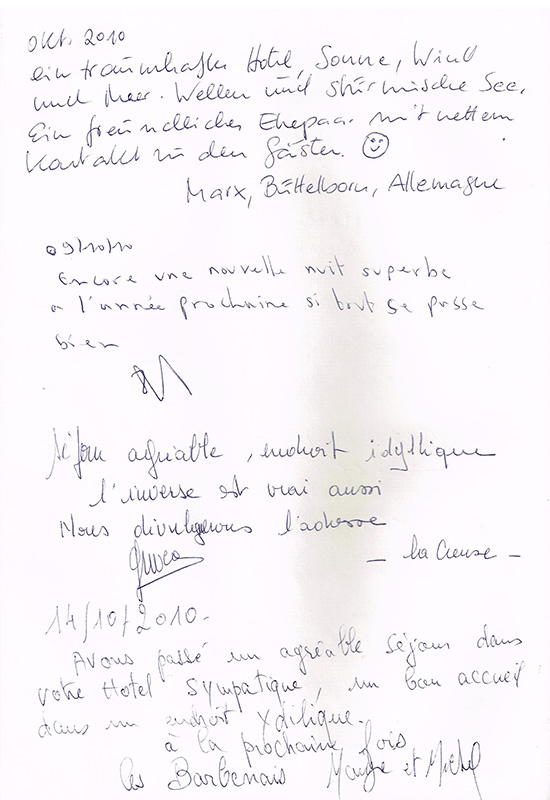 Okt. 2010
ein traumhaftes Hotel, Sonne, Wind
und Meer. Wellen und stürmische See.
Ein freundliches Ehepaar mit nettem
Kontakt zu den Gästen.
Marx, Büttelborn, Allemagne
09/10/10
Encore une nouvelle nuit superbe
a l'année prochaine si tout se passe
bien
Séjour agréable, endroit idyllique
l'inverse est vrai aussi
Nous divulguerons l'adresse
- la Creuse -
14/10/2010.
Avons passé un agréable séjour dans
votre Hotel Sympatique, un bon accueil
dans un endroit ydilique.
à la prochaine fois
les Barbenais et Michel